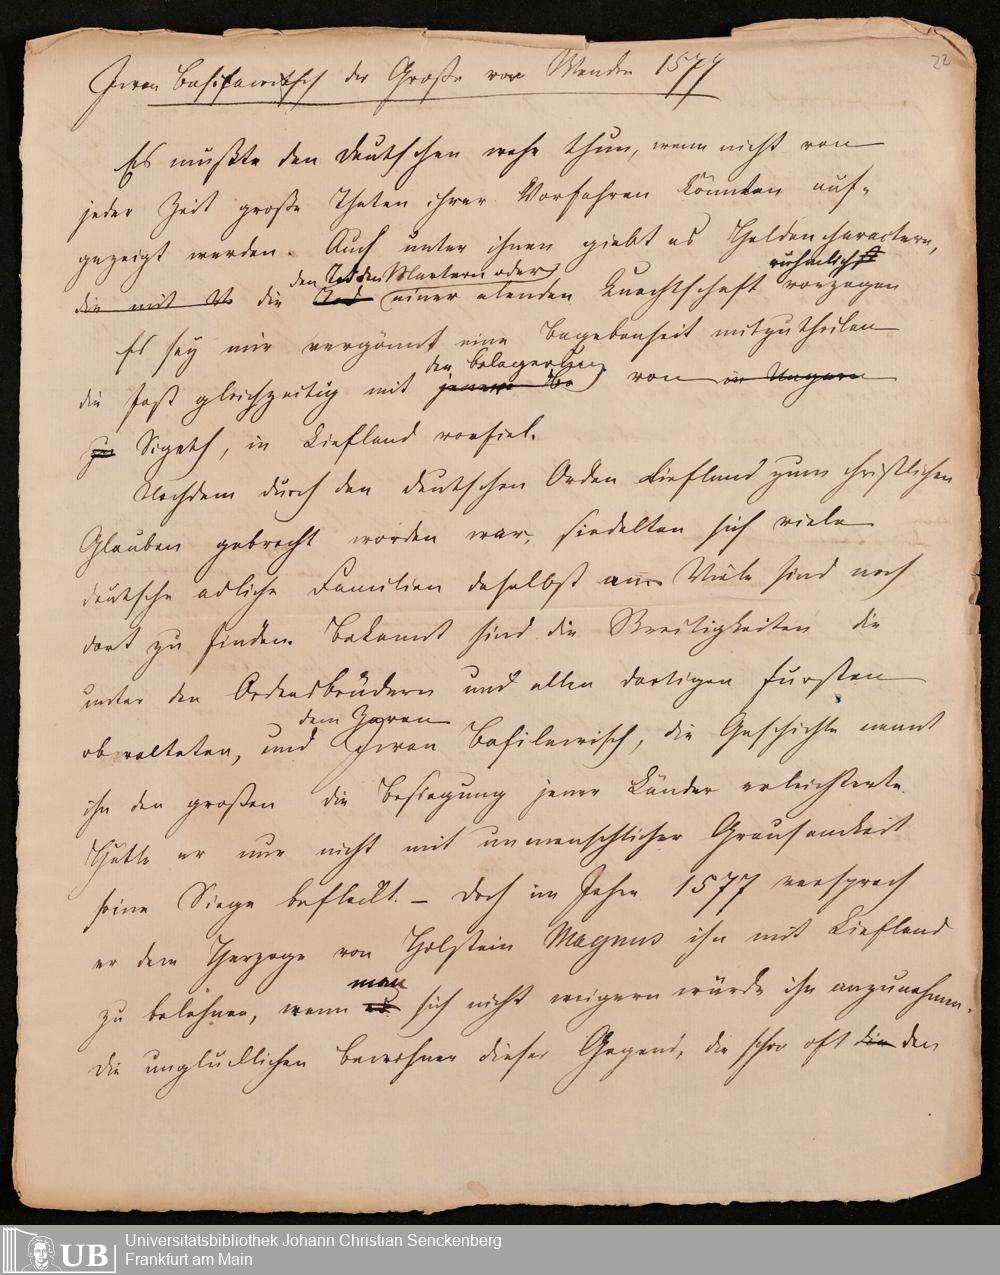 22
Iwan Basilewitsch der Große vor Wenden 1577
Es mußte den Deutschen wehe thun, wenn nicht von
jeder Zeit große Thaten ihrer Vorfahren könnten auf-
gezeigt werden. Auch unter ihnen giebt es Heldencharactere,
den Tod den Martern oder rühmlichst
die mit die Tod einer elenden Knechtschaft vorzogen
Es sey mir vergönnt eine Begebenheit mitzutheilen
den Belagerung
die fast gleichzeitig mit jener von in Ungarn
zu Sigeth, in Liefland vorfiel.
Nachdem durch den deutschen Orden Liefland zum christlichen
Glauben gebracht worden war, siedelten sich viele
deutsche adliche Familien daselbst an. Viele sind noch
dort zu finden. Bekannt sind die Streitigkeiten die
unter den Ordensbrüdern und allen dortigen Fürsten
dem Zaren
obwalteten, und Iwan Basilewisch, die Geschichte nennt
ihn den großen die Besiegung jener Länder erleichterte.
Hätte er nur nicht mit unmenschlicher Grausamkeit
seine Siege befleckt. – Doch im Jahre 1577 versprach
er dem Herzoge von Holstein Magnus ihn mit Liefland
man
zu belehnen, wenn es sich nicht weigern würde ihn anzunehmen.
Die unglücklichen Bewohner dieser Gegend, die schon oft die den
UB
Universitätsbibliothek Johann Christian Senckenberg
Frankfurt am Main